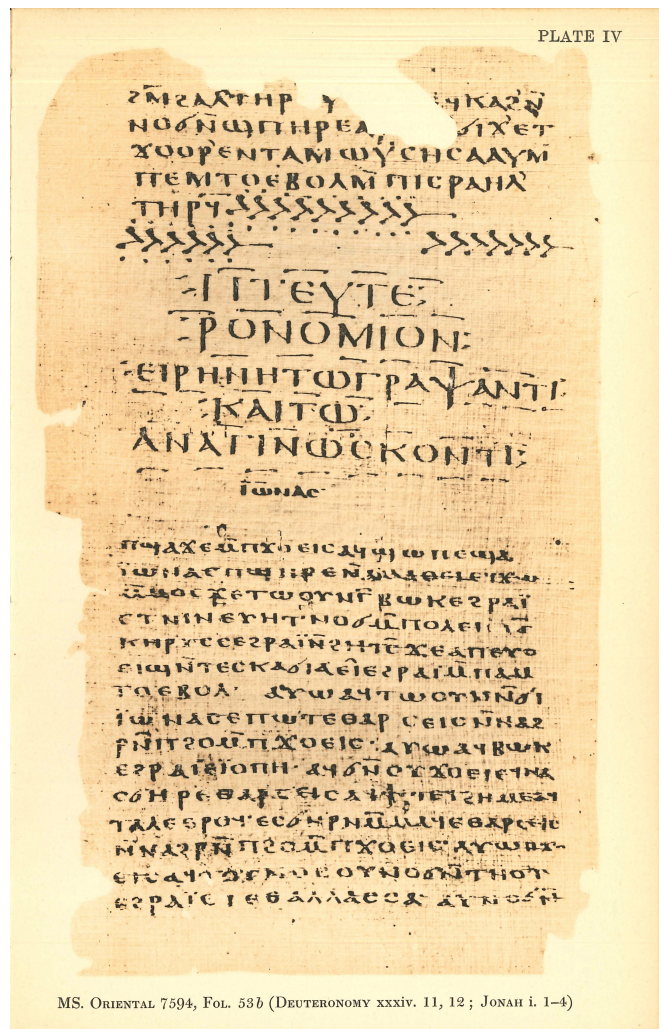 PLATE IV
ϩⲙ̄ϩⲁⲗⲧⲏⲣ ⲩ ϥⲕⲁϩⲛ̄
ⲛⲟϭⲛ̄ϣⲡⲏⲣⲉⲁ ϭⲓϫⲉⲧ
ϫⲟⲟⲣⲉⲛⲧⲁⲙⲱⲩ̈ⲥⲏⲥⲁⲁⲩⲙ
ⲡⲉⲙⲧⲟⲉⲃⲟⲗⲙ̄ⲡⲓⲥⲣⲁⲏⲗ
ⲧⲏⲣϥ
ⲡⲧⲉⲩⲧⲉ:
ⲣⲟⲛⲟⲙⲓⲟⲛ:
ⲉⲓⲣⲏⲛⲏⲧⲱⲅⲣⲁⲯⲁⲛⲧⲓ:
ⲕⲁⲓⲧⲱ:
ⲁⲛⲁⲅⲓⲛⲱⲥⲕⲟⲛⲧⲓ:
ⲓ̈ⲱⲛⲁⲥ
ⲡϣⲁϫⲉⲙ̄ⲡϫⲟⲉⲓⲥⲁϥϣⲱⲡⲉϣⲁ
ⲓ̈ⲱⲛⲁⲥⲡϣⲏⲣⲉⲛ̄ⲁⲙⲁⲑⲉⲓⲉϥϫⲱ
ⲙ̄ⲙⲟⲥϫⲉⲧⲱⲟⲩⲛⲅ̄ⲃⲱⲕⲉϩⲣⲁⲓ̈
ⲉⲧⲛⲓⲛⲉⲩⲏⲧⲛⲟϭⲙ̄ⲡⲟⲗⲉⲓⲥ
ⲕⲏⲣⲩⲥⲥⲉϩⲣⲁⲓ̈ⲛ̄ϩⲏⲧⲥ̄ϫⲉⲁⲡⲉϩⲣⲟ
ⲉⲓϣⲛ̄ⲧⲉⲥⲕⲁϭⲓⲁⲉⲓ̈ⲉϩⲣⲁⲓ̈ⲙ̄ⲡⲁⲙ
ⲧⲟⲉⲃⲟⲗ· ⲁⲩⲱⲁϥⲧⲱⲟⲩⲛⲛ̄ϭⲓ
ⲓ̈ⲱⲛⲁⲥⲉⲡⲱⲧⲉⲑⲁⲣⲥⲉⲓⲥⲛ̄ⲛⲁϩ
ⲣⲙ̄ⲡϩⲟⲙ̄ⲡϫⲟⲉⲓⲥ·ⲁⲩⲱⲁϥⲃⲱⲕ
ⲉϩⲣⲁⲓ̈ⲉⲓ̈ⲟⲡⲏ·ⲁϥϭⲛ̄ⲟⲩϫⲟⲉⲓⲉϥⲛⲁ
ⲥϭⲏⲣⲉⲑⲁⲣⲥⲉⲓⲥⲁϥϯⲧⲉϥϩⲏⲙⲉⲁϥ
ⲧⲁⲗⲉⲉⲣⲟϥ·ⲉⲥϭⲏⲣⲛⲙ̄ⲙⲁϥⲉⲑⲁⲣⲥⲉⲓⲥ
ⲛ̄ⲛⲁϩⲣⲙ̄ⲡϩⲟⲙ̄ⲡϫⲟⲉⲓⲥ·ⲁⲩⲱⲡϫⲟ
ⲉⲓⲥⲁϥⲧⲟⲩⲛⲟⲥⲟⲩⲛⲟϭⲛ̄ⲧⲏⲟⲩ
ⲉϩⲣⲁⲓ̈ⲉⲑⲁⲗⲗⲁⲥⲥⲁ ⲁⲩⲛⲟϭⲛ̄
MS. Oriental 7594, Fol. 53b (Deuteronomy xxxiv. 11, 12 ; Jonah i. 1–4)